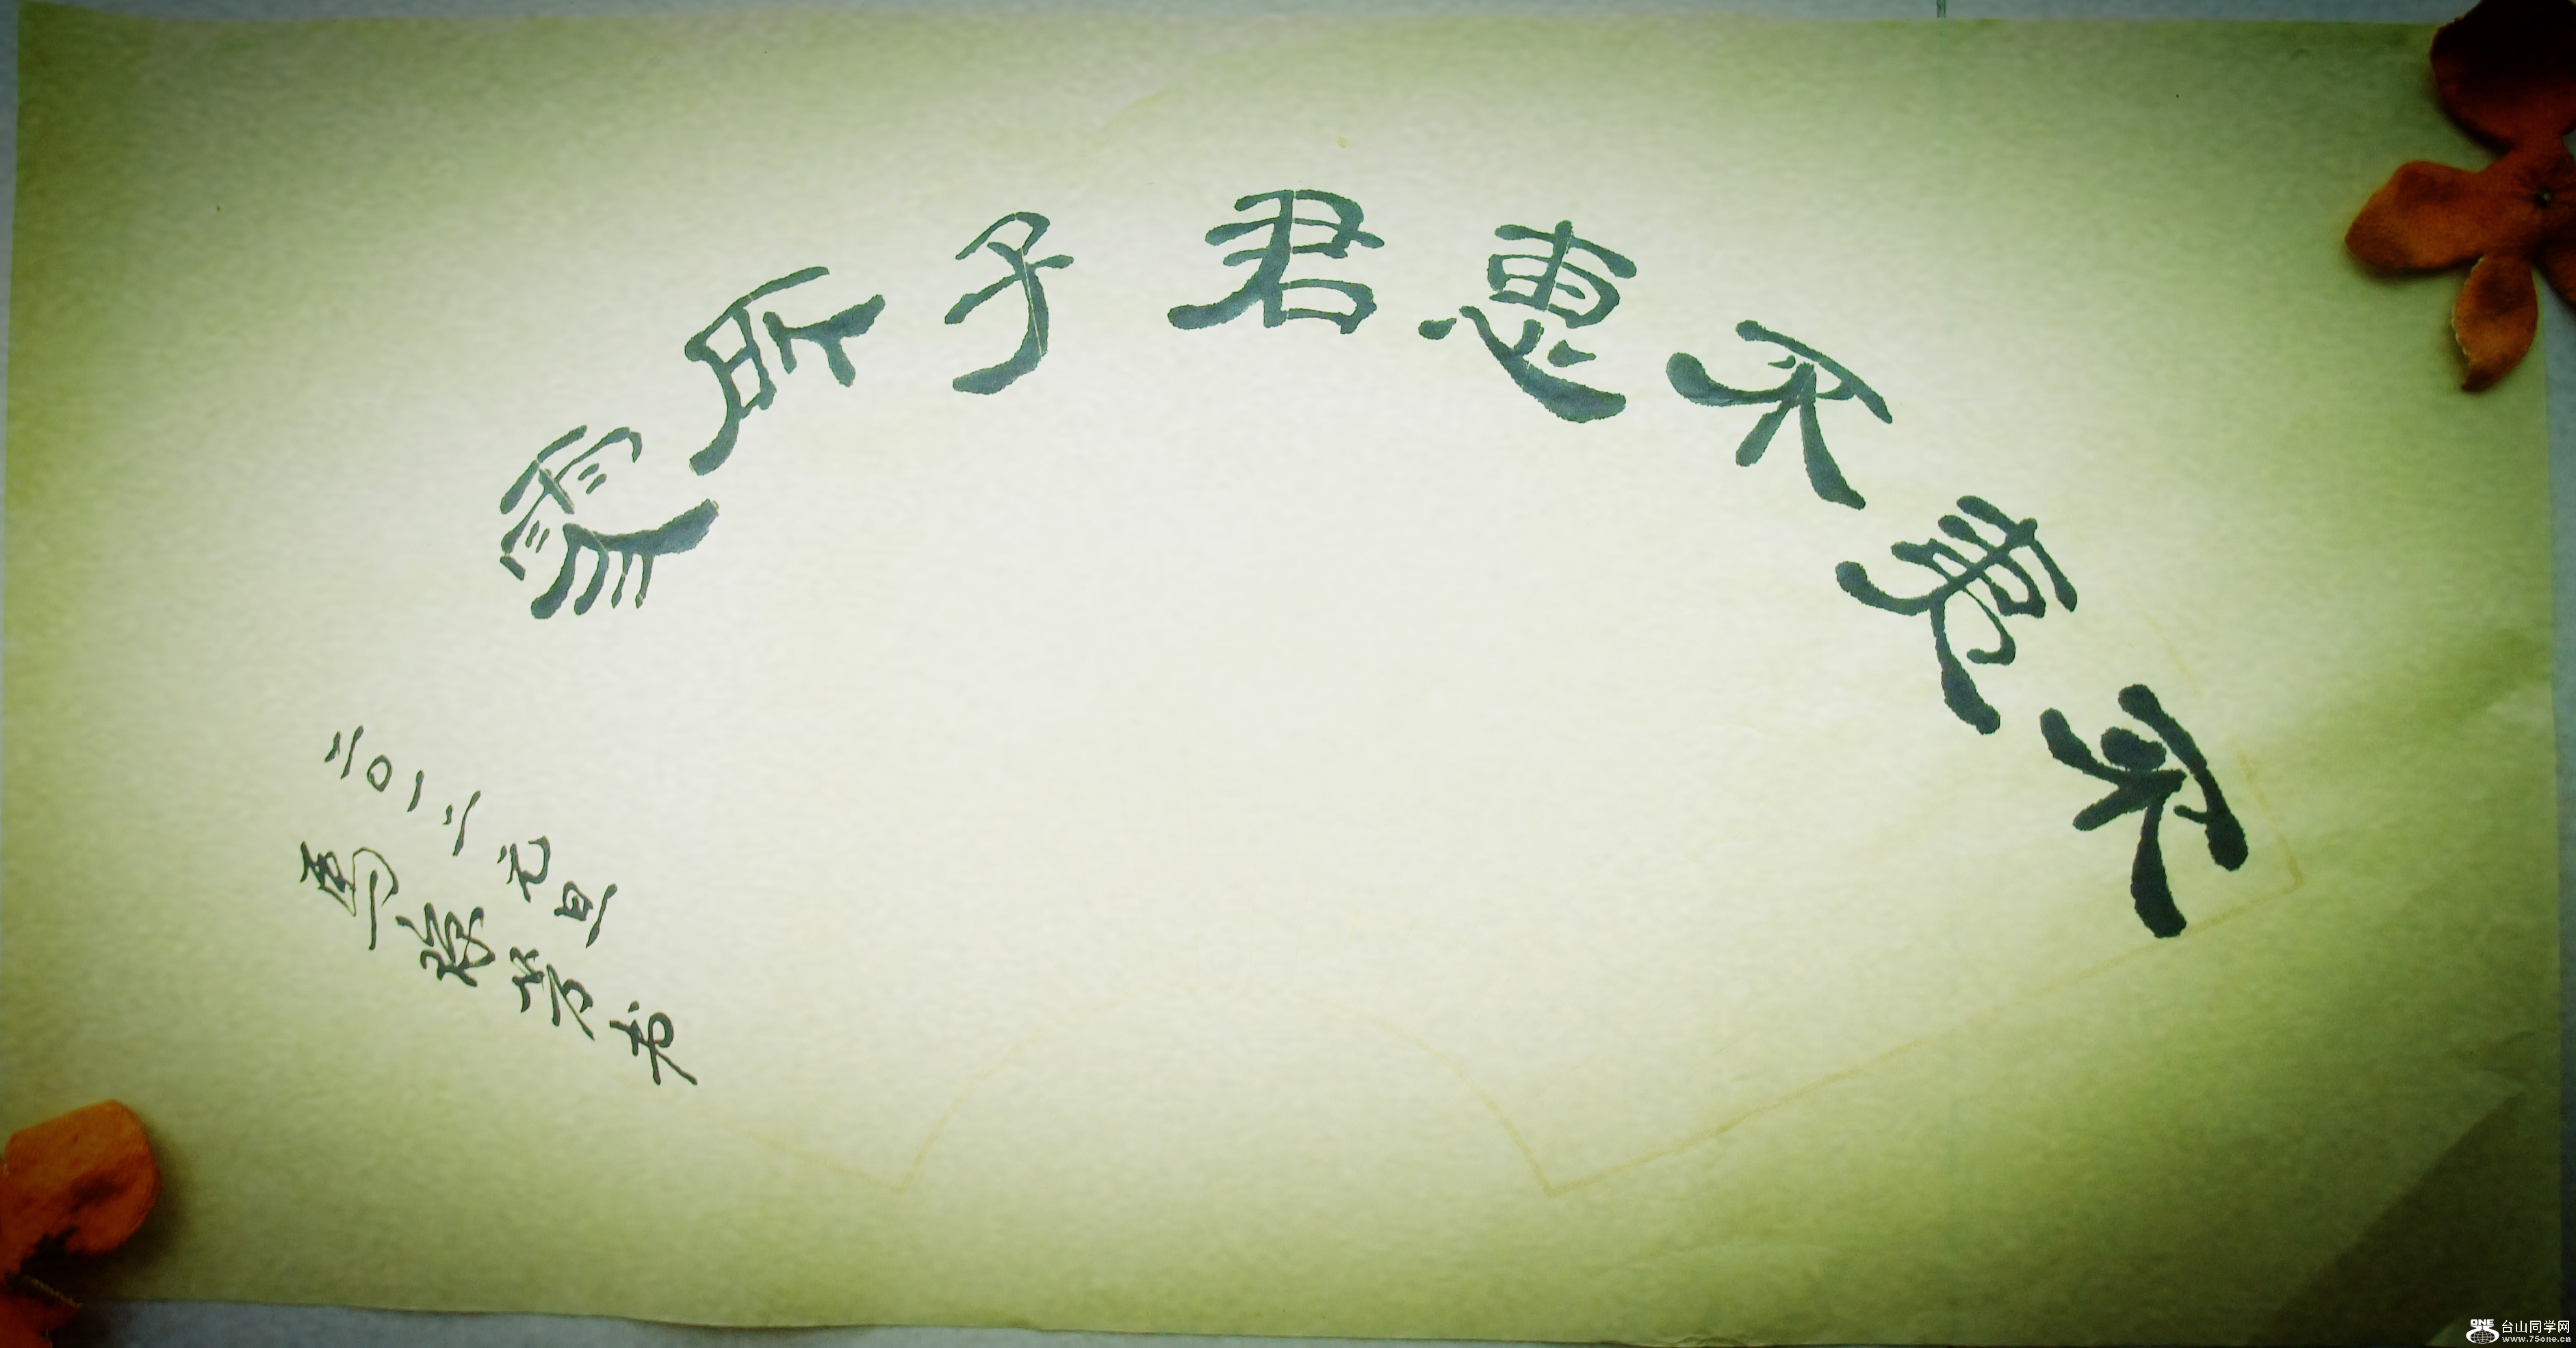 不不惠君子所爲
二〇一二元旦
馬芳书
ONE 台山同学网
www.75one.cn